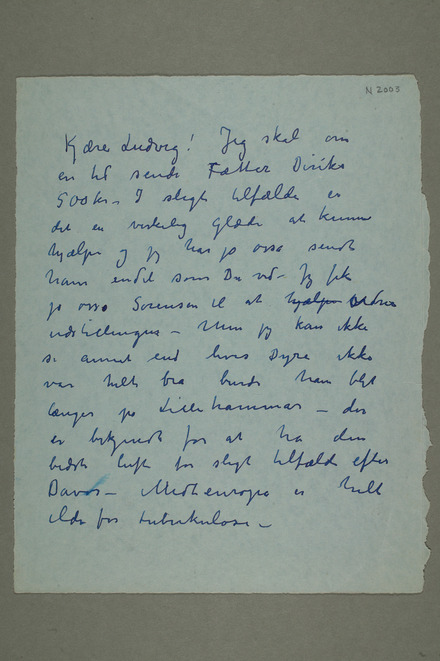 N 2005
Kjære Ludvig! Jeg skal om
en tid sende Fætter Diriks
500 kr – I sligt tilfælde er
det en virkelig Glæde at kunne
hjælpe og jeg har jo osso sendt
ham endel som Du ved – Jeg fik
jo osso Sørensen til at hjælpe ordne
udstillingen – Men jeg kan ikke
se annet end hvis Dyre ikke
var helt bra burde han blit
længer på Lillehammer – der
er bekjendt for at ha den
bedste luft for sligt tilfælde efter
Davos – Mellemeuropa er helt
ilde for tuberkulose –